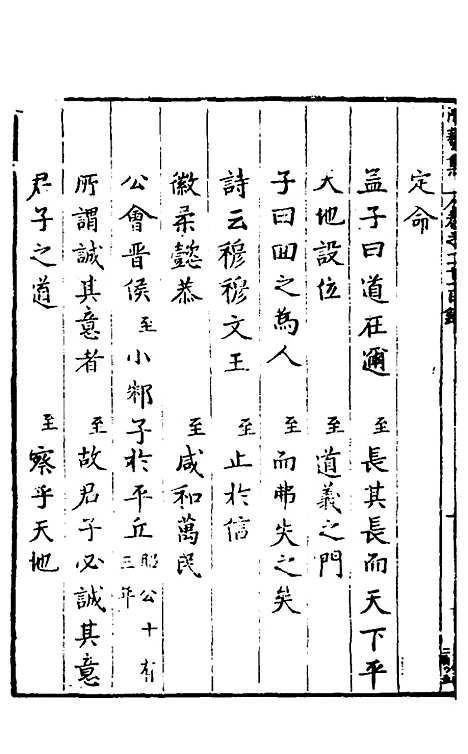 定命
孟子曰道在邇 至 長其長而天下平
天地設位 至 道義之門
子曰回之為人 至 而弗失之矣
詩云穆穆文王 至 止於信
徽柔懿恭 至 咸和萬民
公會晉侯 至 小邾子於平丘 昭公十有三年
所謂誠其意者 至 故君子必誠其意
君子之道 至 察乎天地